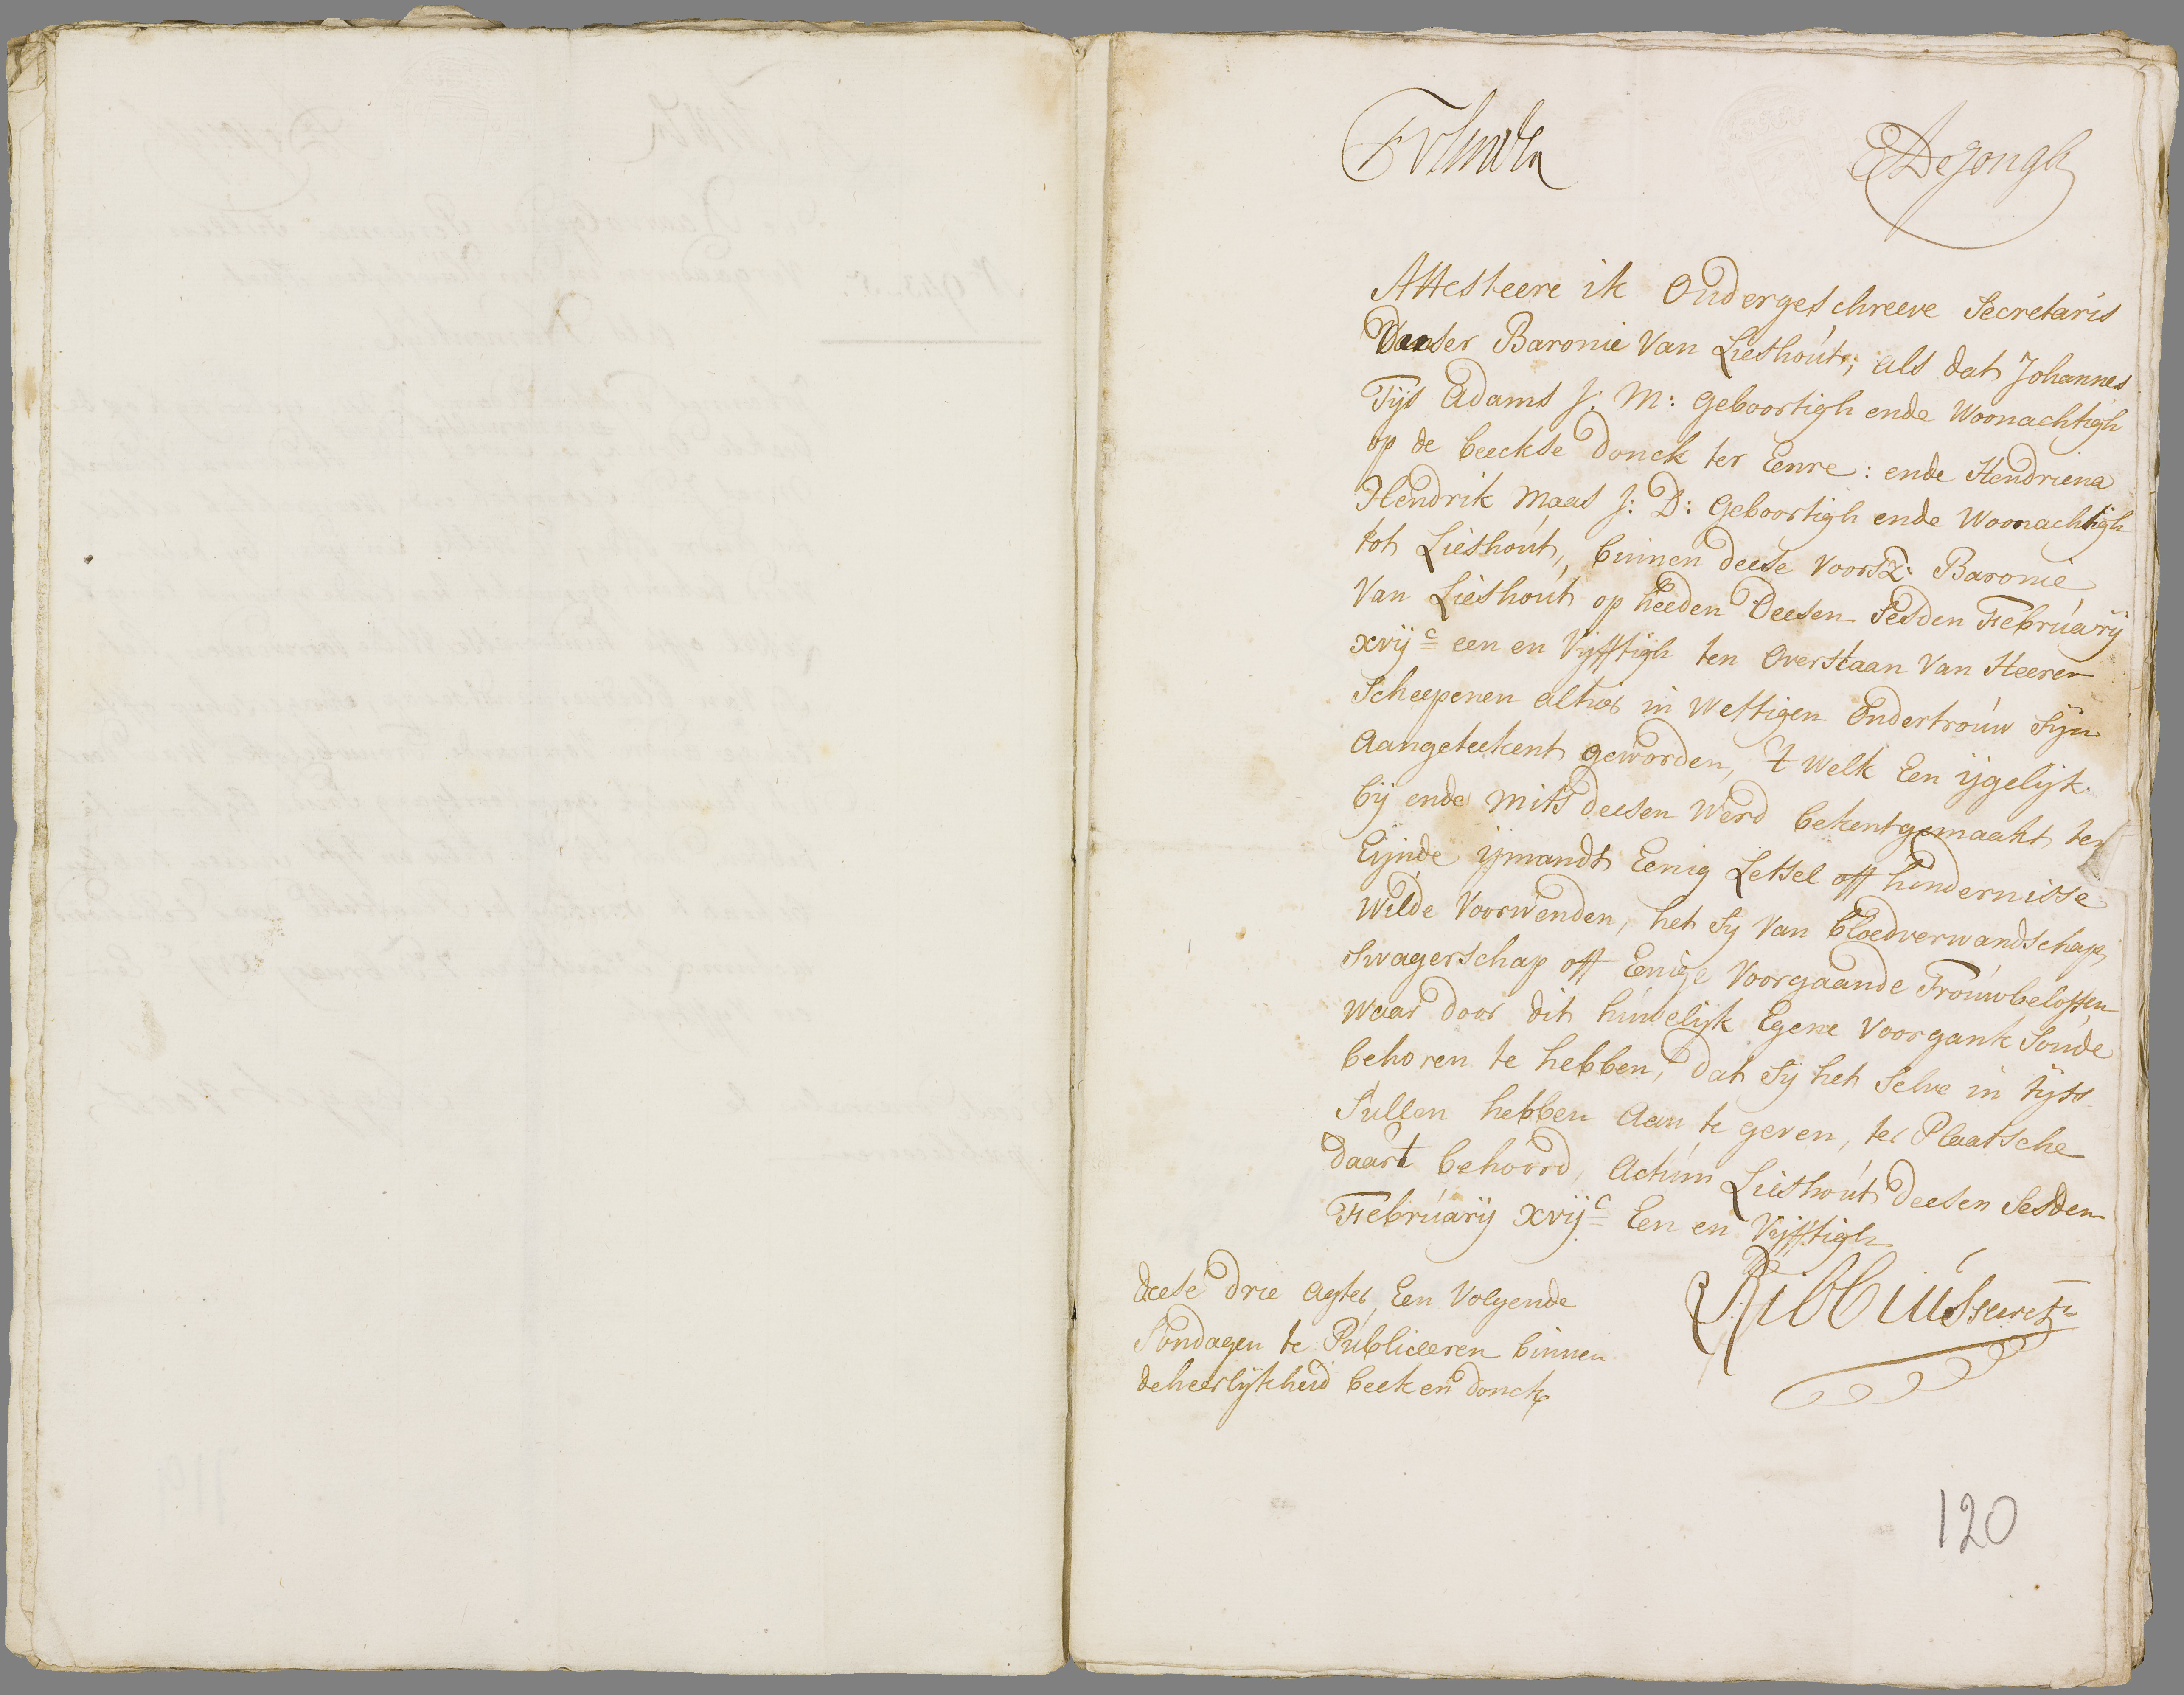 EDeJongh
Attesteere ik Ondergeschreeve Secretaris
Deeser Baronie Van Lieshout, als dat Johannes
Tijs Adams J: M: geboortigh ende Woonachtigh
op de beeckse donck ter Eenre: ende Hendriena
Hendrik Maas J: D: geboortigh ende Woonachtigh
tot Lieshout, binnen deese voorsz: Baronie
Van Lieshout op heeden Deesen Sesden February
xvijc een en Vijfftigh ten Overstaan Van Heeren
Scheepenen alhier in Wettigen Ondertrouw Sijn
Aangeteekent geworden, 't welk Een ijgelijk
bij ende mits deesen werd bekentgemaakt ten
Eijnde ijmandt Eenig Letsel off hindernisse
Wilde Voorwenden, het Sij Van bloedverwandschap,
Swagerschap off Enige Voorgaande Trouwbeloften
waar door dit huwelijk Egene Voorgank Soude
behoren te hebben, dat Sij het Selve in tijts
Sullen hebben Aan te geven, ter Plaatsche
daar't behoord, Actum Lieshout deesen Sesden
February xvijc Een en Vijfftigh
Ribbius secrets
deese drie agter Een Volgende
Sondagen te Publiceeren binnen
de heerlijkheid beek en donck
120